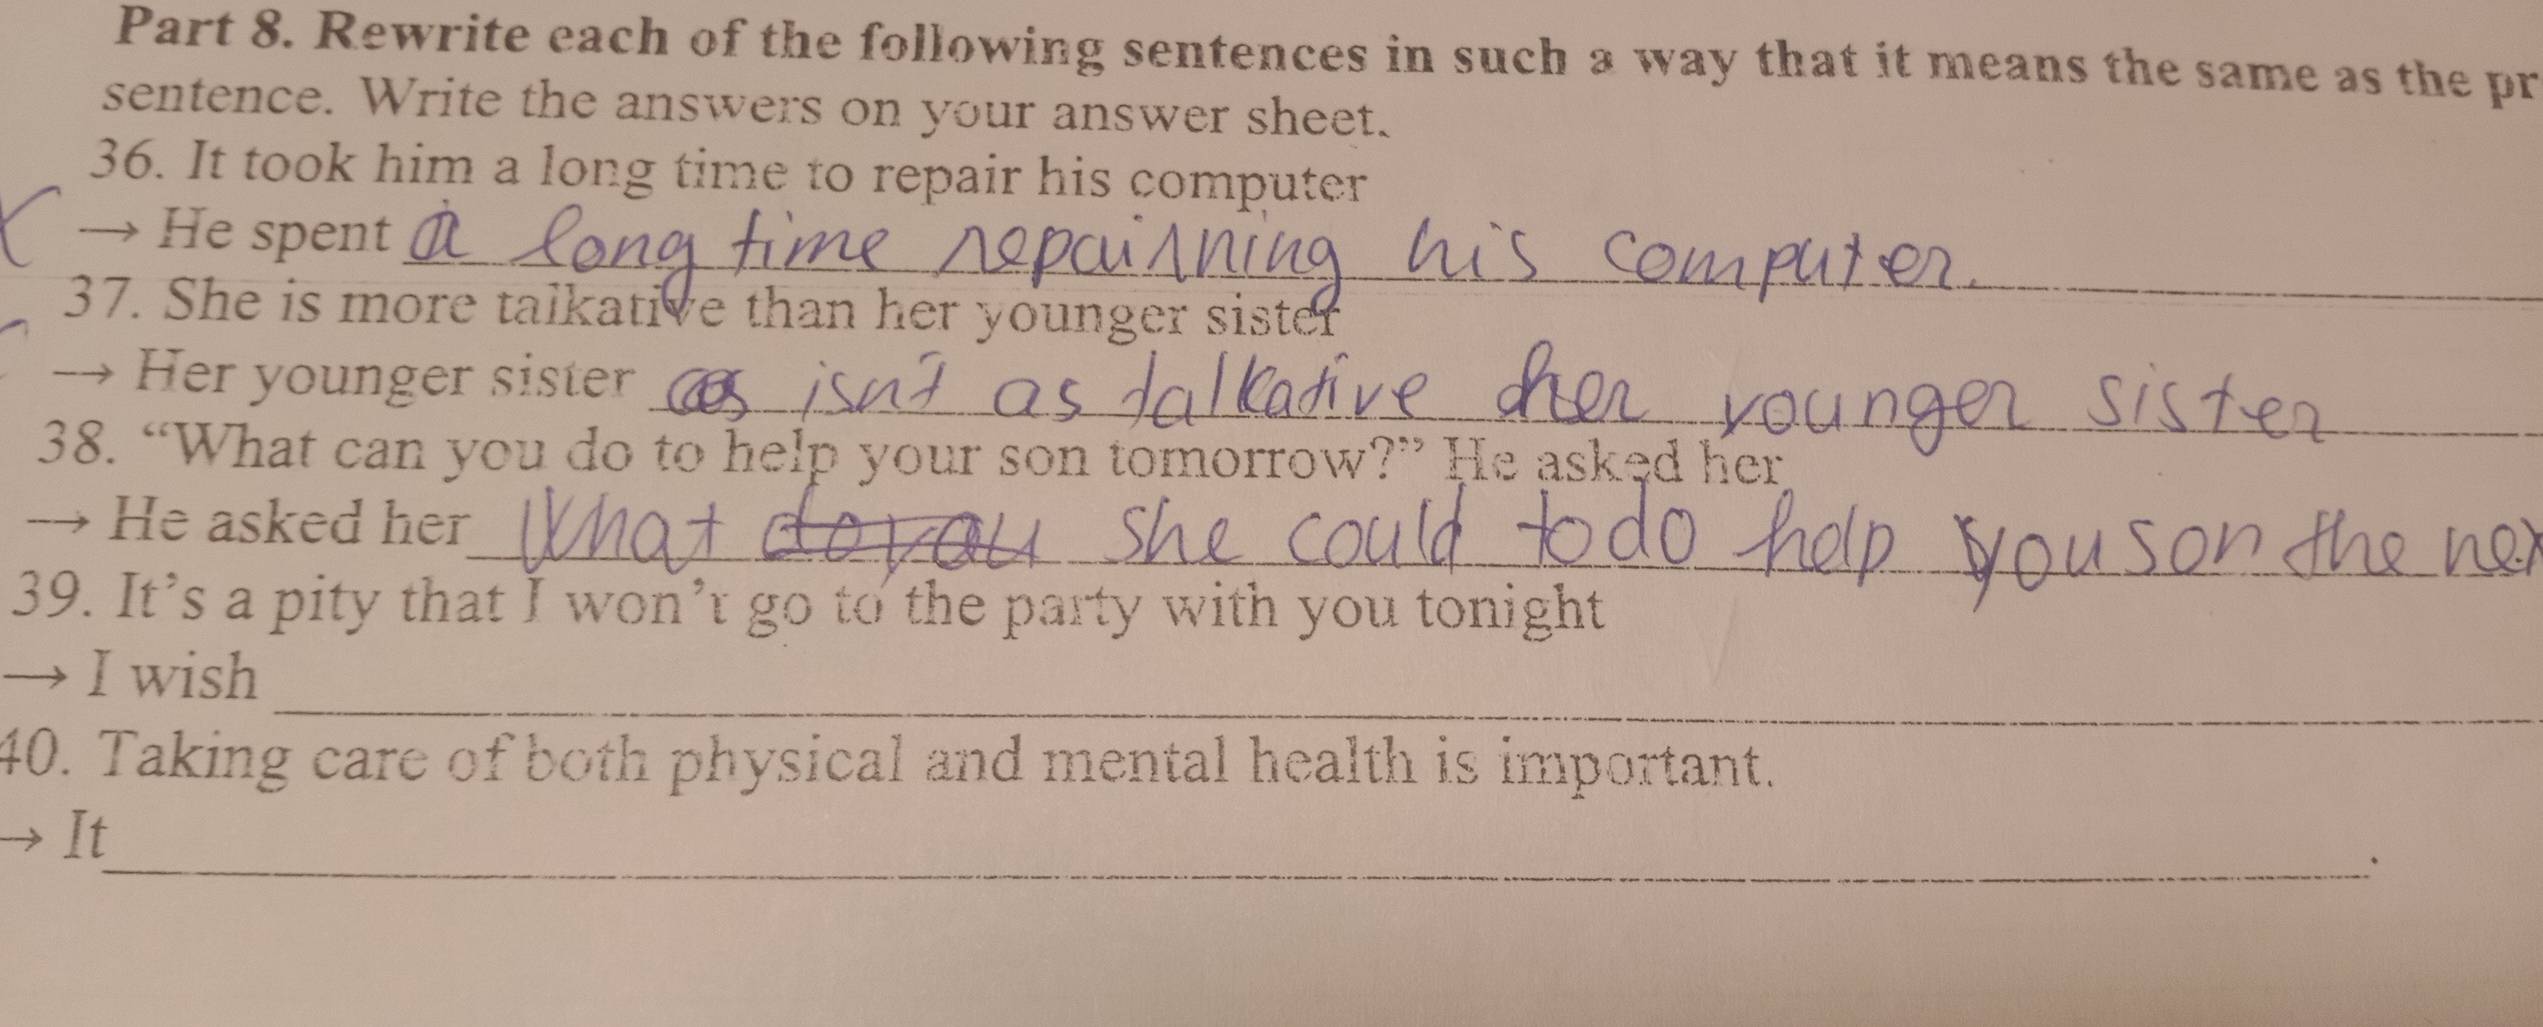 Part 8. Rewrite each of the following sentences in such a way that it means the same as the pr
sentence. Write the answers on your answer sheet.
36. It took him a long time to repair his computer
→ He spent a long time repairning his computer.
37. She is more talkative than her younger sister
→ Her younger sister isn't as talkative her younger sister
38. “What can you do to help your son tomorrow?” He asked her
→ He asked her What do you she could to do help you son the nex
39. It’s a pity that I won’t go to the party with you tonight
→ I wish
40. Taking care of both physical and mental health is important.
→ It .